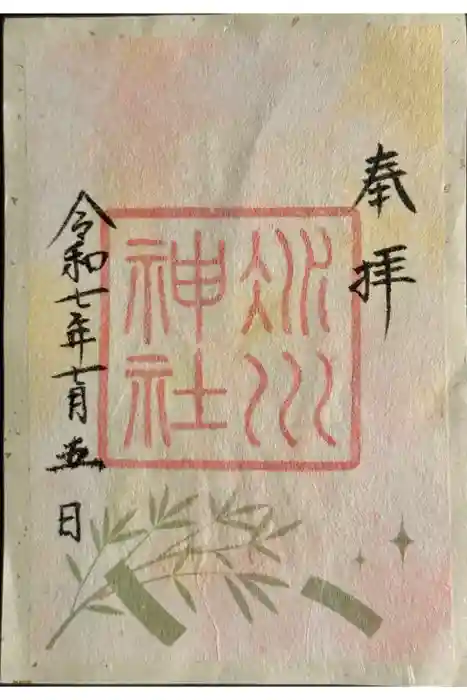 奉拝
冰川
神社
令和七年七月五日